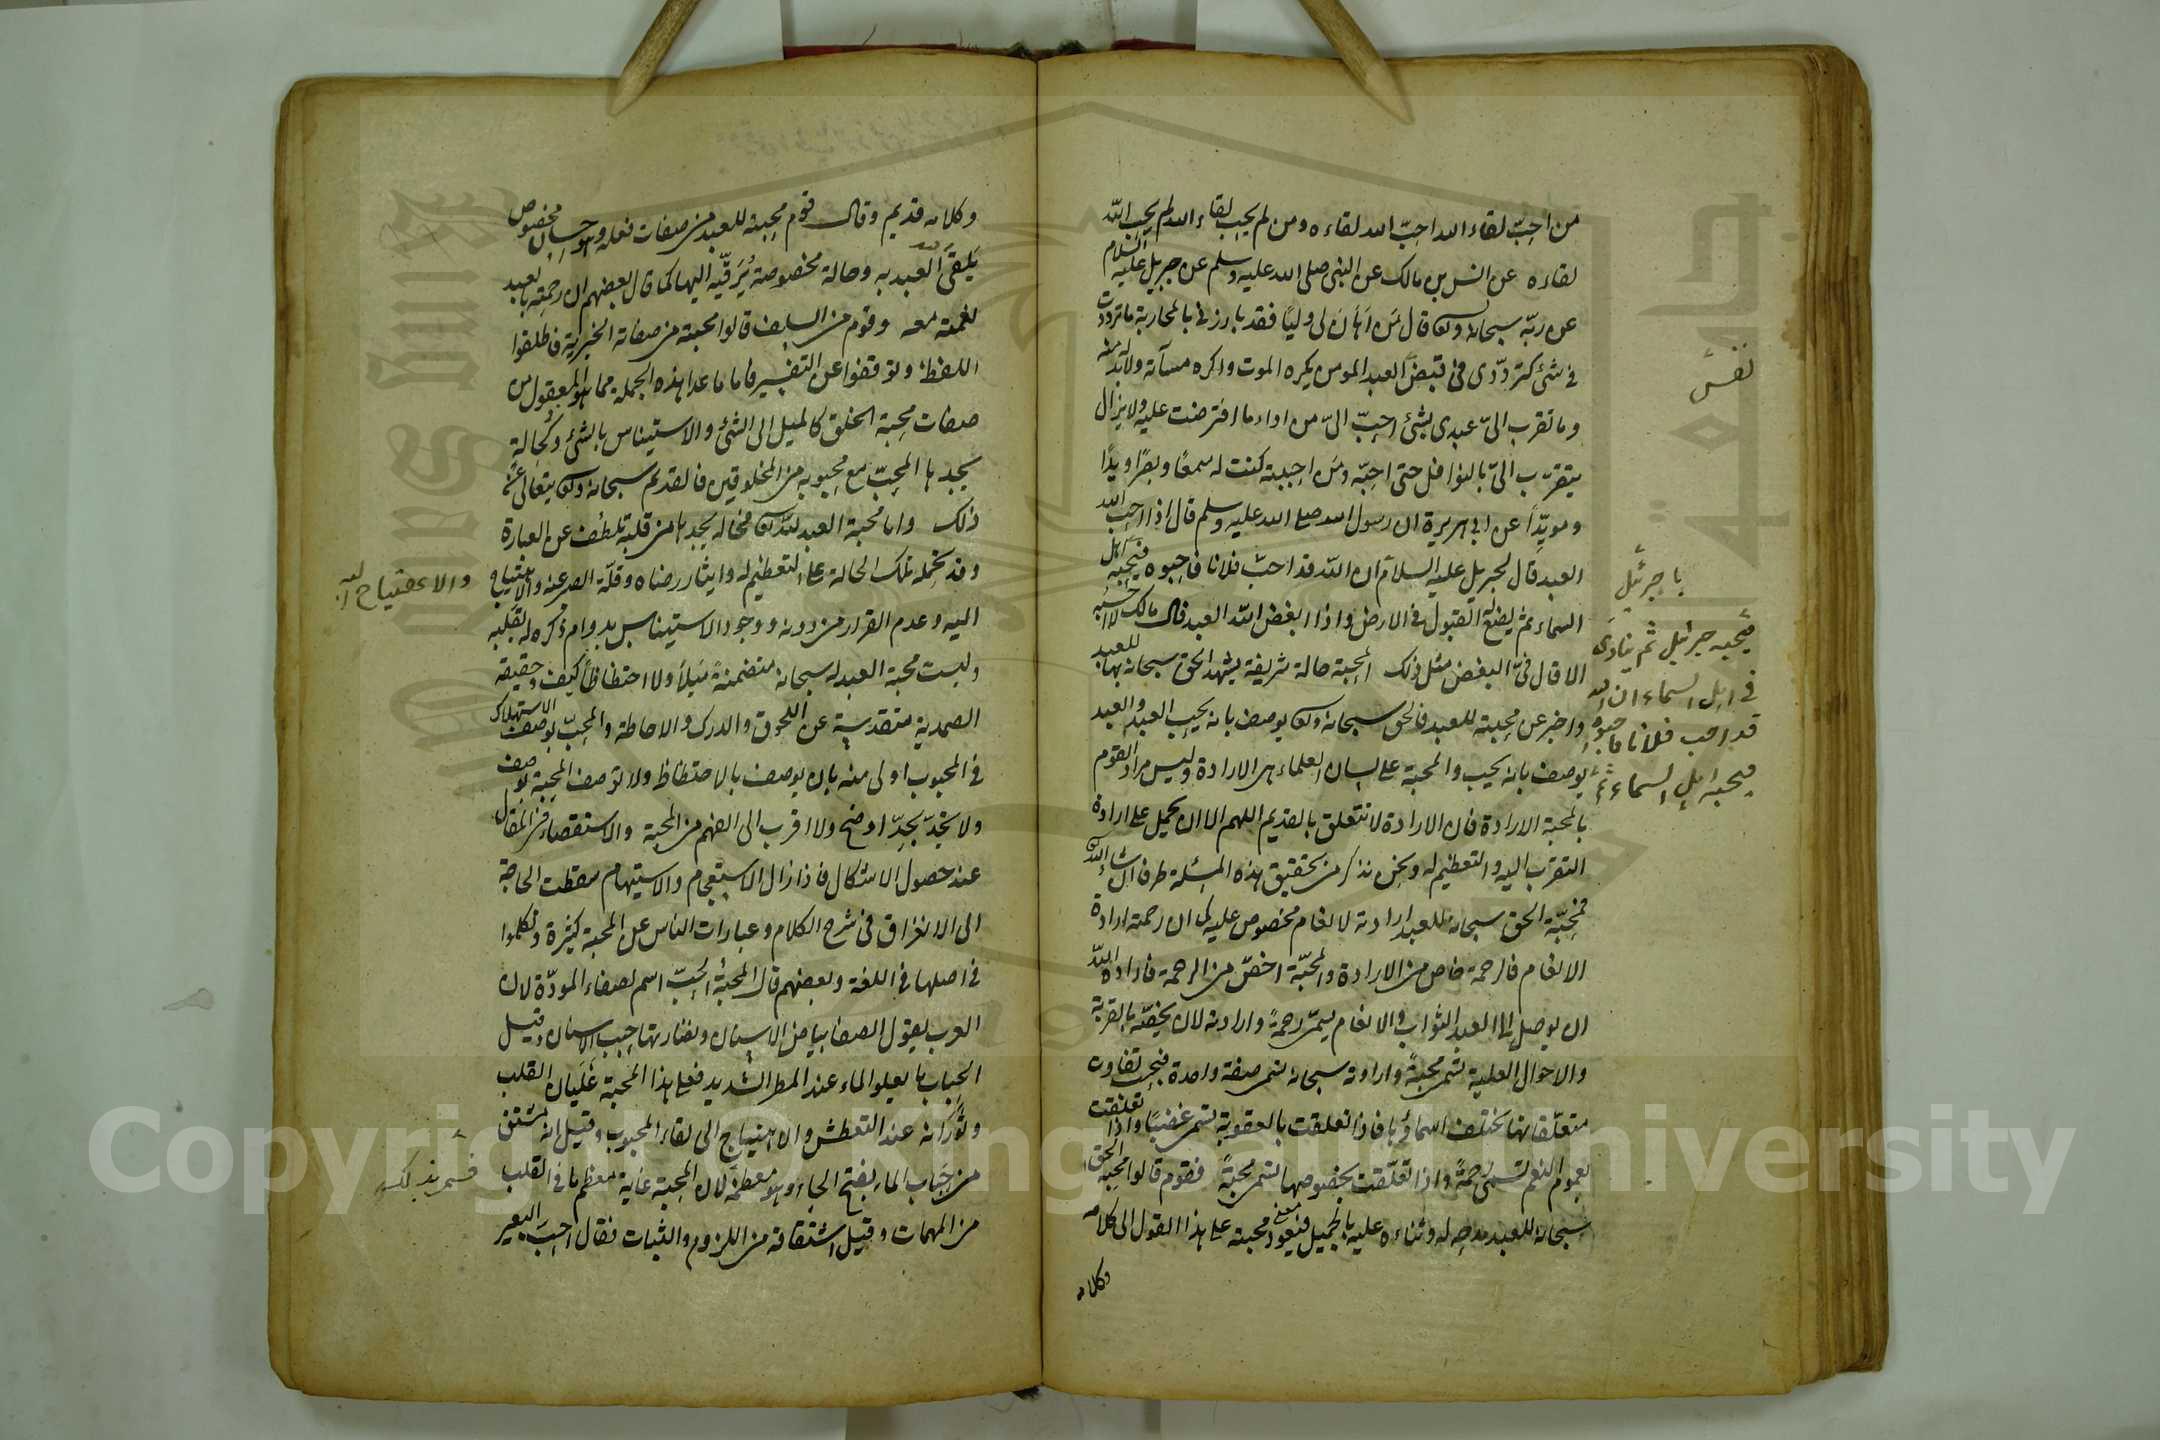 من احبّ لقاء الله احبّ الله لقاءه ومن لم يحب لقاء الله لم يحب الله
لقاءه عن انس بن مالك عن النبى صلى الله عليه وسلم عن جبريل عليه السلام
عن ربّه سبحانه وتعالى قال مَن اَهَانَ لى وليًا فقد بارزنى بالمحاربة ما ترددت
فى شئ كتردّدى فى قبض العبد المومن يكره الموت واكره مسآته ولابد له منه
وما تقرب الىّ عبدى بشئ احبّ الىّ من اداء ما افترضت عليه ولا يزال
يتقرّب الىّ بالنوافل حتى احبّه ومَن احببته كنت له سمعًا وبصرًا ويدًا
ومويّدًا عن ابى هريرة ان رسول الله صلى الله عليه وسلم قال اذا احب الله
العبد قال لجبريل عليه السلام ان الله قد احبّ فلانا فاحبوه فيحبه اهل
السماء ثم يضع له القبول فى الارض واذا ابغض الله العبد قال مالك لا احسبه
الا قال فى البغض مثل ذلك المحبة حالة شريفة يشهد الحق سبحانه بها للعبد
واخبر عن محبته للعبد فالحق سبحانه وتعالى يوصف بانه يحب العبد والعبد
يوصف بانه يحب والمحبة على لسان العلماء هى الارادة وليس مراد القوم
بالمحبة الارادة فان الارادة لا تتعلق بالقديم اللهم الا ان يحمل على ارادة
التقرب اليه والتعظيم له ونحن نذكر من تحقيق هذه المسئلة طرفا ان شا الله
فمحبّة الحق سبحانه للعبد ارادته لانعام مخصوص عليه كما ان رحمته ارادة
الانعام فالرحمة خاص من الارادة والمحبّة اخصّ من الرحمة فارادة الله
ان يوصل الى العبد الثواب والانعام يسمّى رحمةً وارادته لان يخصّه بالقربة
والاحوال العلية تسمى محبةً وارادته سبحانه تسمى صفة واحدة فبحسب تفاوت
متعلّقاتها تختلف اسمائها فاذا تعلقت بالعقوبة تسمى غضبًا واذا تعلقت
بعموم النعم تسمى رحمةً واذا تعلّقت بخصوصها تسمى محبةً فقوم قالوا محبة الحق
سبحانه للعبد مدحه له وثناءه عليه بالجميل فيعود معنى محبته على هذا القول الى كلامه
وكلامه
نفس
يا جبرئيل
فيحبه جبرئيل ثم ينادى
فى اهل السماء ان الله
قد احب فلانا فاحبوه
فيحبه اهل السماء ثم
وكلامه قديم وقال قوم محبته للعبد من صفات فعله وهو احسان مخصوص
يَلقى الله العبد به وحالة مخصوصة يُرَقّيه اليها كما قال بعضهم ان رحمته بالعبد
نعمته معه وقوم من السلف قالوا محبته من صفاته الخبرية فاطلقوا
اللفظ وتوقفوا عن التفسير فاما ما عدا هذه الجملة مما هو المعقول من
صفات محبة الخلق كالميل الى الشئ والاستيناس بالشئ وكحالة
يجدها المحبّ مع محبوبه من المخلوقين فالقديم سبحانه وتعالى يتعالى عن
ذلك واما محبة العبد لله تعالى فحالة يجدها من قلبه تلطف عن العبارة
وقد تحمله تلك الحالة على التعظيم له وايثار رضاه وقلّة الصبر عنه والاهتياج
اليه وعدم القرار من دونه ووجود الاستيناس بدوام ذكره له بقلبه
وليست محبة العبد له سبحانه متضمنةً مَيلًا ولا احتظاظًا كيف وحقيقة
الصمدية متقدسة عن اللحوق والدرك والاحاطة والمحبّ بوصف الاستهلاك
فى المحبوب اولى منه بان يوصف بالاحتظاظ ولا توصف المحبة بوصف
ولا تحدّ بحدّ اوضح ولا اقرب الى الفهم من المحبة والاستقصاء فى المقال
عند حصول الاشكال فاذا زال الاستعجام والاستبهام سقطت الحاجة
الى الاغراق فى شرح الكلام وعبارات الناس عن المحبة كثيرة وتكلموا
فى اصلها فى اللغة وبعضهم قال المحبّةُ الحبّ اسم لصفاء المودّة لان
العرب يقول لصفا بياض الاسنان ونضارتها حبب الاسنان وقيل
الحباب ما يعلو الماء عند المطر الشديد فعلى هذا المحبة غَلَيان القلب
وثوَرانه عند التعطش والاهتياج الى لقاء المحبوب وقيل انه مشتق
من حَباب الماء بفتح الحاء وهو معظمه لان المحبة غاية معظم ما فى القلب
من المهمات وقيل اشتقاقه من اللزوم والثبات فقال احبّ البعير
والاحتياج
فسمى بذلك
Copyright © King Saud University